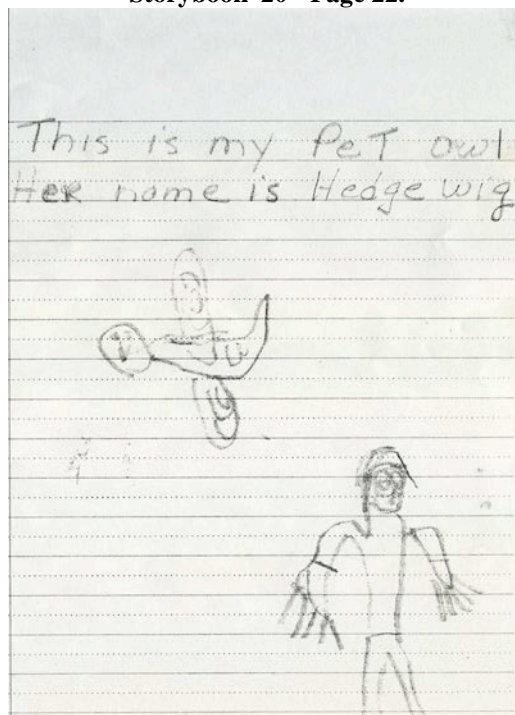 Storybook 20 Page 22.
This is my PeT owl
Her name is Hedge wig